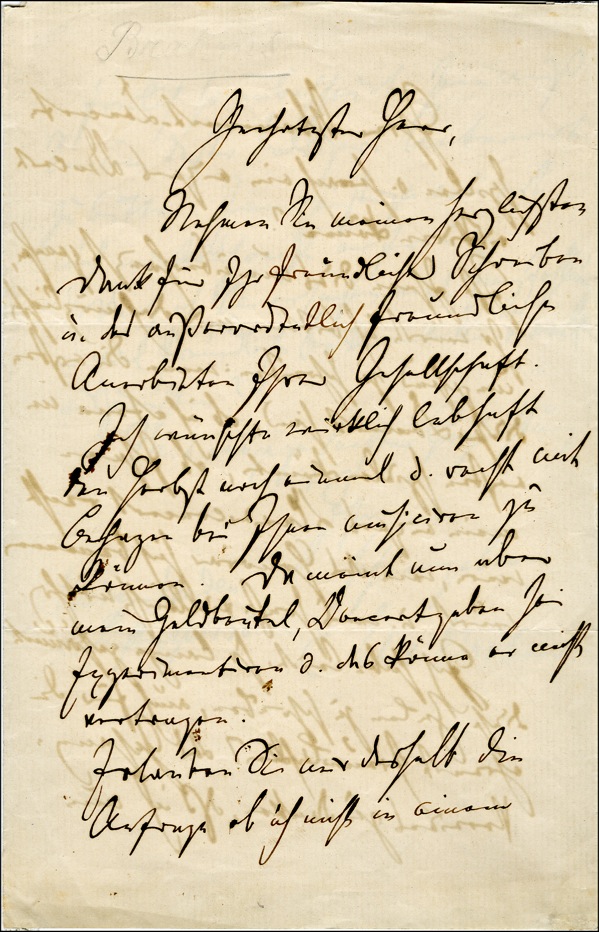 Geehrtester Herr,
Nehmen Sie meinen herzlichsten
Dank für Ihr freundliches Schreiben
u. das außerordentlich freundliche
Anerbieten Ihrer Gesellschaft.
Ich wünschte wirklich lebhaft
den Herbst noch einmal u. recht mit
Behagen bei Ihnen musiciren zu
können. Da meint nun aber
mein Geldbeutel, Concertgeben sei
Experimentiren u. das könne er nicht
vertragen.
Erlauben Sie mir deshalb die
Anfrage ob ich nicht in einem